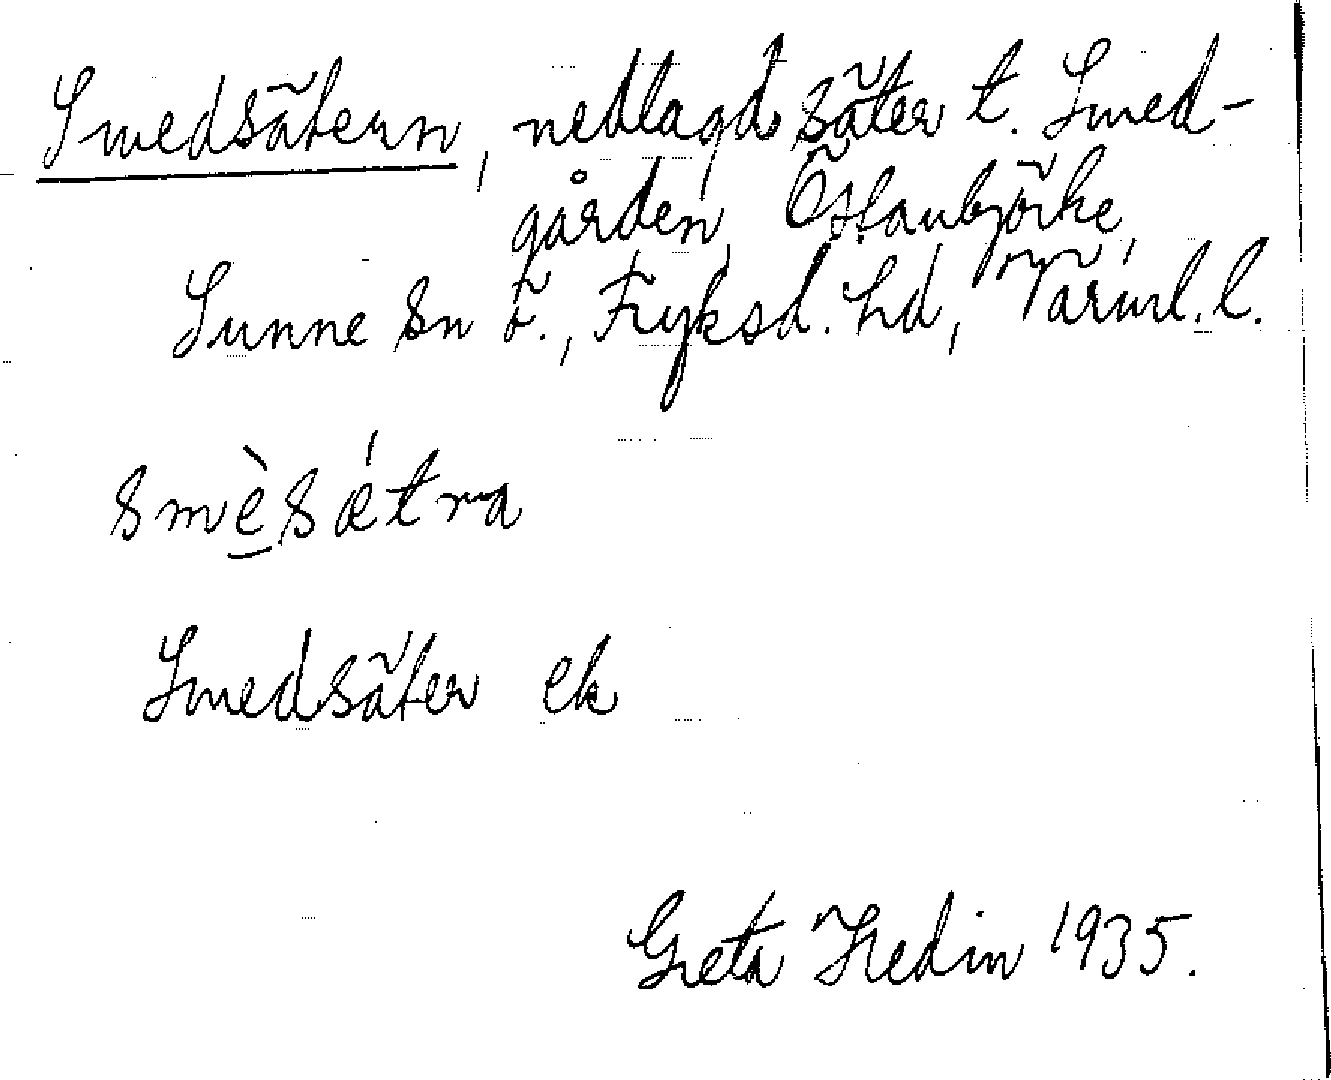 Smedsätern, nedlagd säter t. Smed-
gården, Östanbjörke,
Sunne sn ö., Fryksd. hd, Värml. l.
smè̱sǽtra
Smedsäter ek
Greta Hedin 1935.